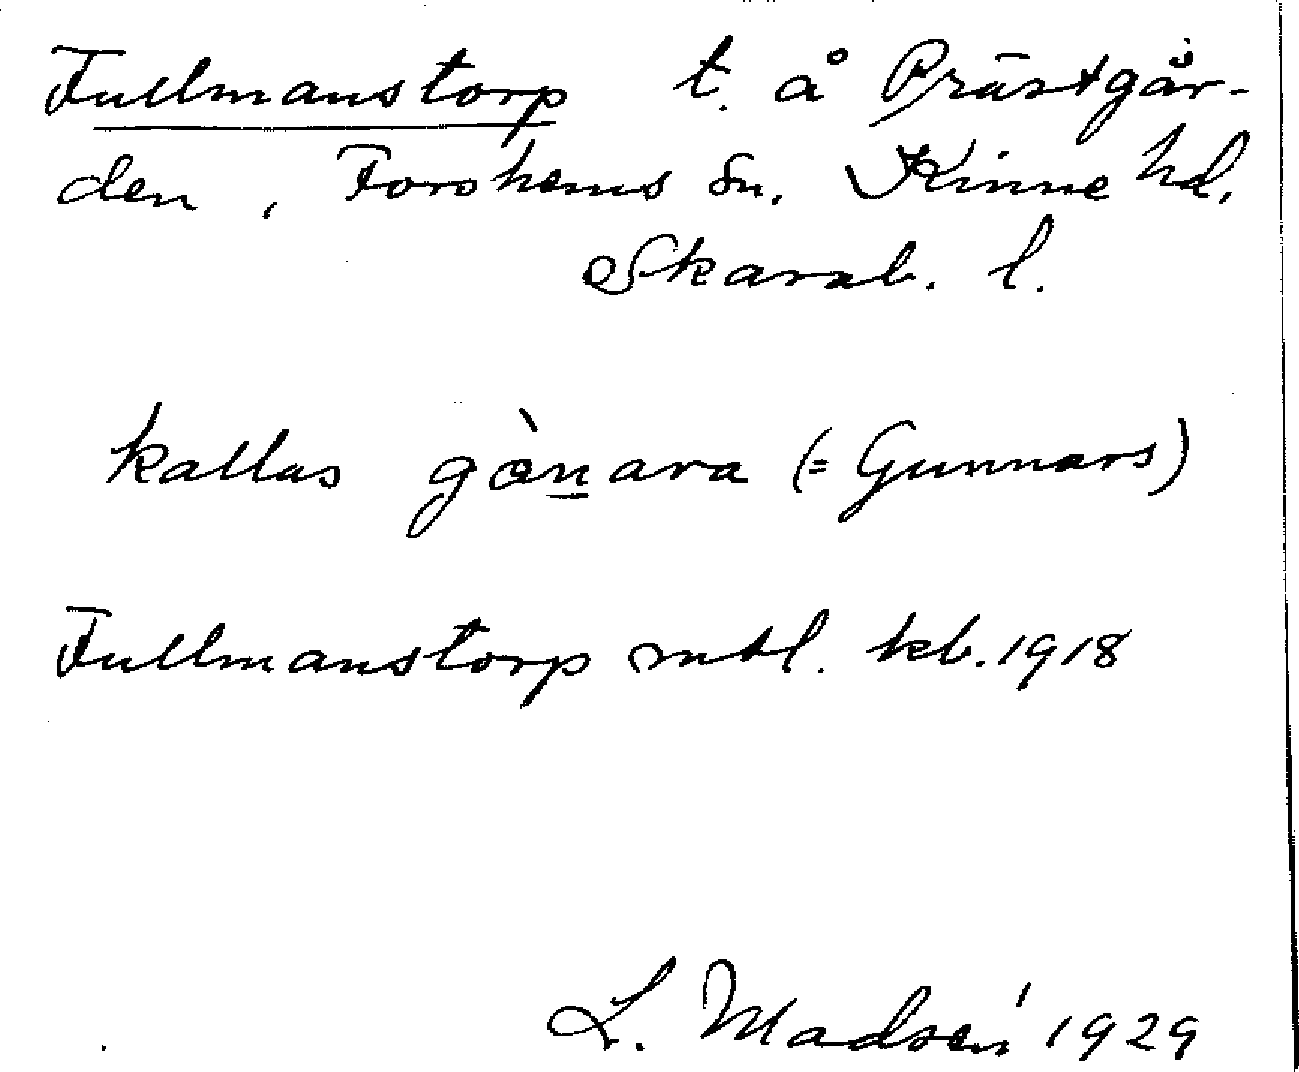 Fullmanstorp t. å Prästgår-
den, Forshems sn. Kinne hd.
Skarab. l.
kallas gònara (= Gunnars)
Fullmanstorp mtl. kb. 1918
L. Madsén 1929